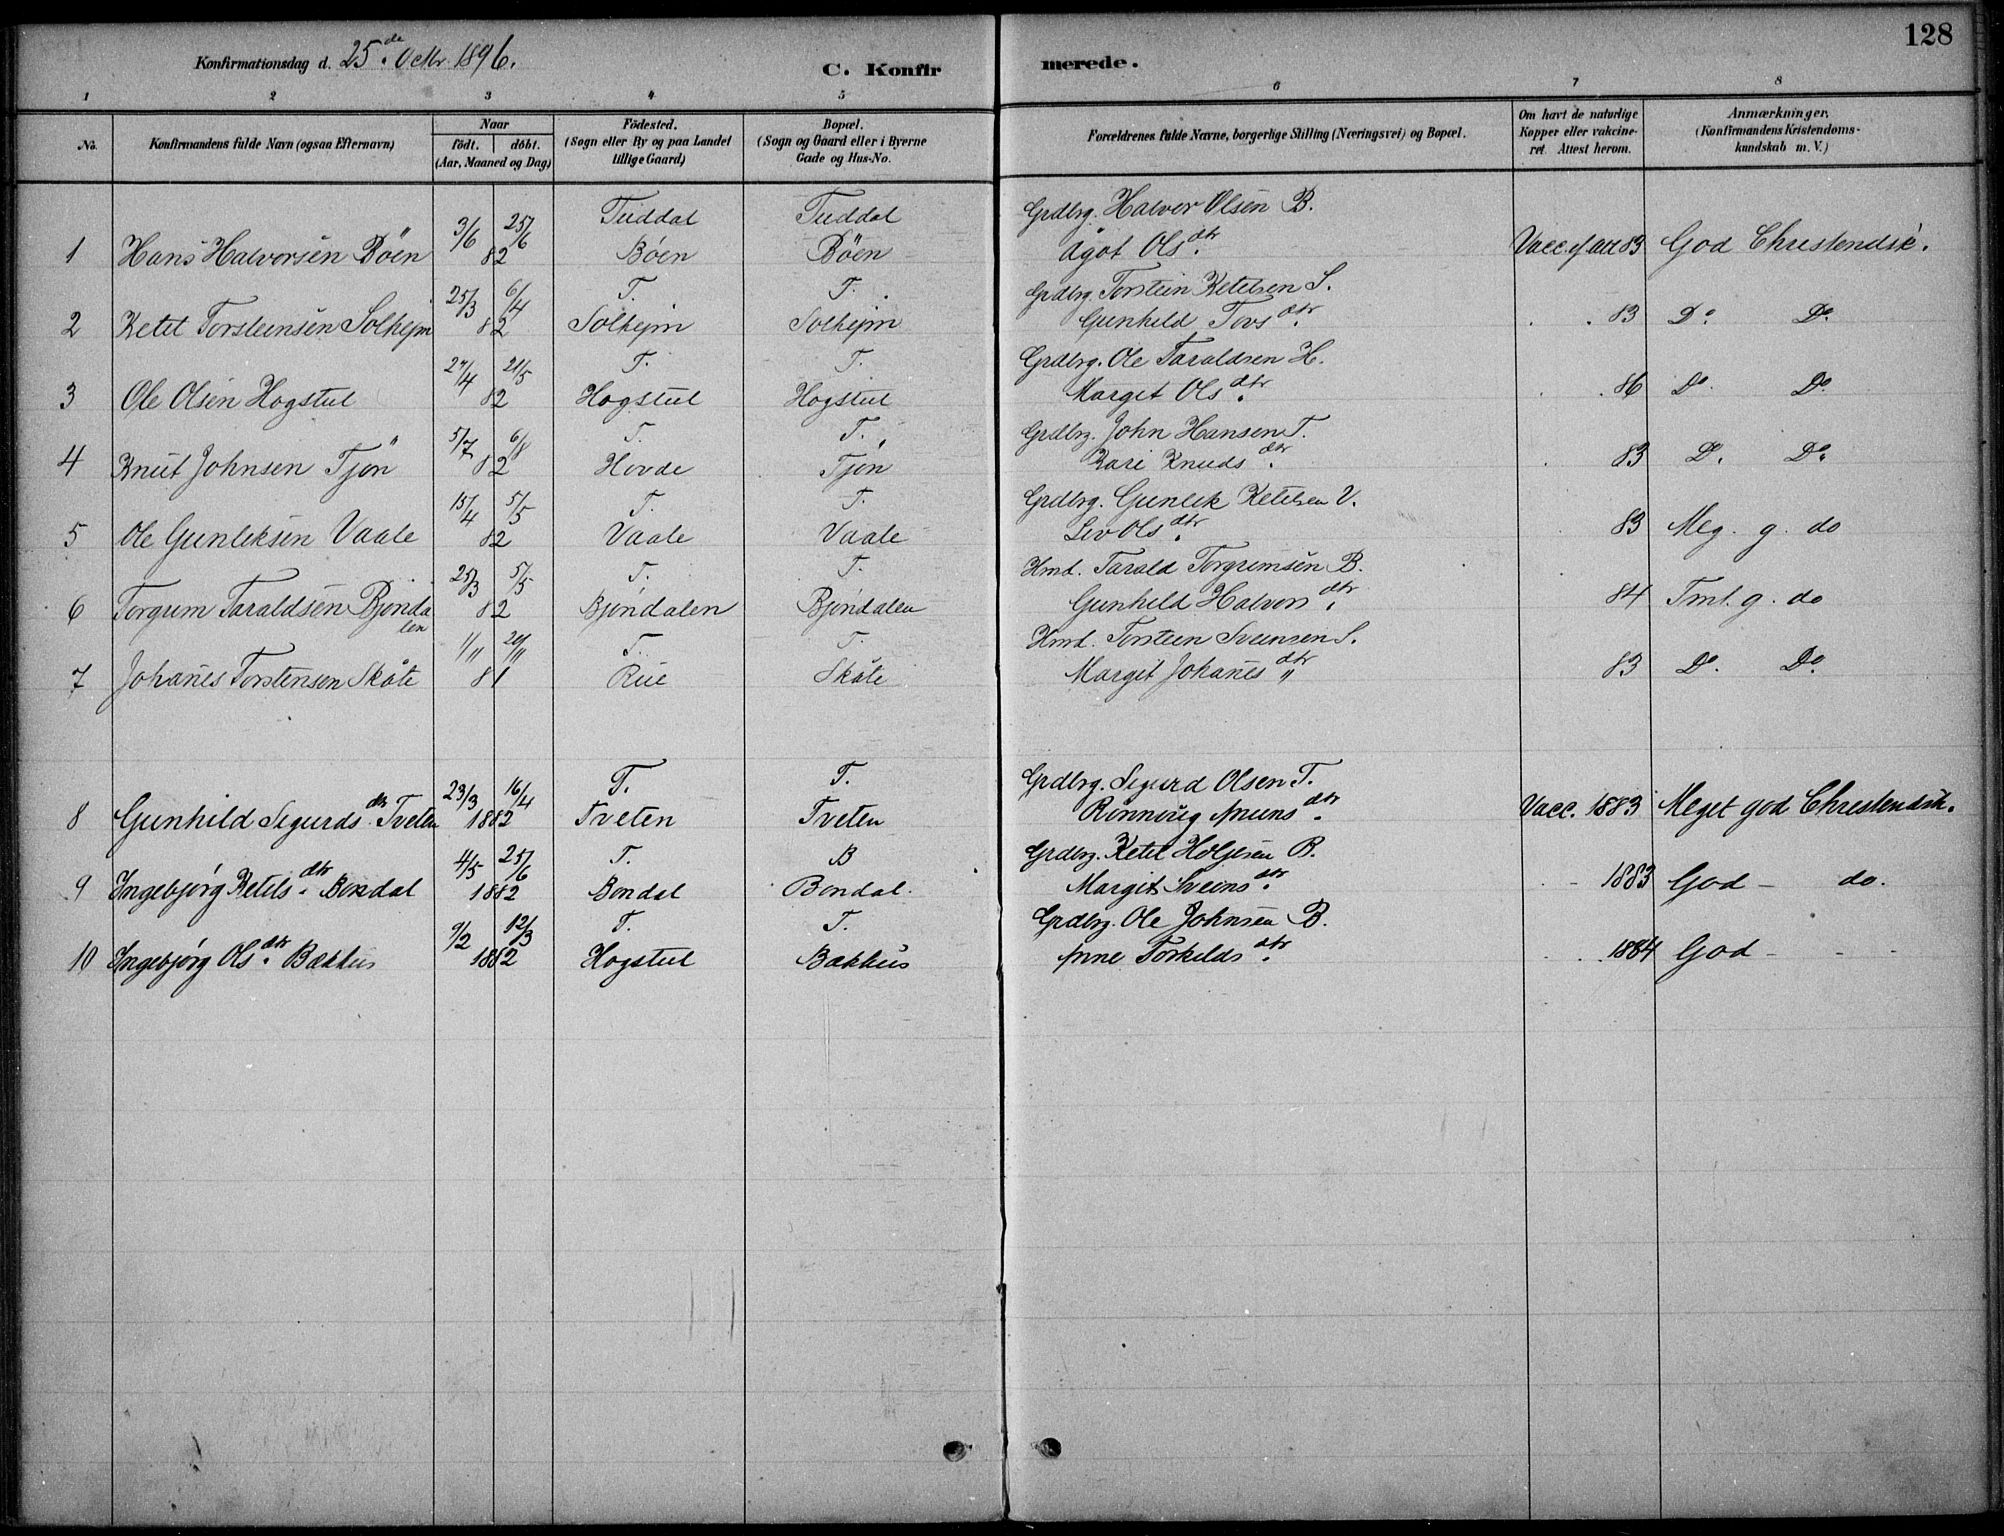 128
Konfirmationsdag d. 25de Octbr 1896.
C. Konfirmerede.
1 2 3 4 5 6 7 8
No.
Konfirmandens fulde Navn (ogsaa Efternavn)
Naar
Födt. döbt.
(Aar, Maaned og Dag)
Födested.
(Sogn eller By og paa Landet
tillige Gaard)
Bopæl.
(Sogn og Gaard eller i Byerne
Gade og Hus-No.
Forældrenes fulde Navne, borgerlige Stilling (Næringsvei) og Bopæl.
Om havt de naturlige
Kopper eller vakcine-
ret. Attest herom.
Anmærkninger.
(Konfirmandens Kristendoms-
kundskab m. V.)
3/6 25/6 Tuddal Tuddal Grdbrg. Halvor Olsen B.
1 Hans Halvorsen Böen 82 Böen Böen Ågot Olsdtr. Vacc. 83 God Christendsk.
25/3 6/4 T. T. Grdbrg. Torstein Ketelsen S.
2 Ketil Torsteinsen Solhejm 82 Solhejm Solhejm Gunhild Tovsdtr. 83 Do. Do.
27/4 21/5 T. T. Grdbrg. Ole Taraldsen H.
3 Ole Olsen Hogstul 82 Hogstul Hogstul Margit Olsdtr. 86 Do. Do.
5/7 6/8 T. T. Grdbrg. John Hansen T.
4 Knut Johnsen Tjön 82 Hovde Tjön Kari Knudsdtr. 83 D. Do.
15/4 5/5 T. T. Grdbrg. Gunlek Ketelsen V.
5 Ole Gunleksen Vaale 82 Vaale Vaale Liv Olsdtr. 83 Meg. g. do
25/3 5/5 T. T. Hmd. Tarald Torgrimsen B.
6 Torgrim Taraldsen Bjönda 82 Bjöndalen Bjöndalen Gunhild Halvorsdtr. 84 Tml. g. do
len
1/11 20/11 T. T. Hmd. Torstein Sveinsen S.
7 Johanes Torstensen Skåte 81 Rue Skåte Margit Johanesdtr. 83 Do. Do.
23/3 16/4 T. T. Grdbrg. Sigurd Olsen T.
8 Gunhild Sigurdsdtr. Tveten 1882 Tveten Tveten Rönnoug Amunsdtr. Vacc. 1883 Meget god Christendsk.
4/5 25/6 T. B Grdbrg. Ketil Holjesen B.
9 Ingebjørg Ketilsdtr. Bondal 1882 Bondal Bondal. Margit Sveinsdtr. 1883 God - do.
9/2 12/3 T. T. Grdbrg. Ole Johnsen B.
10 Ingebjørg Olsdtr. Bækhus 1882 Hogstul Bækhus Anne Torkildsdtr. 1884 God - - -